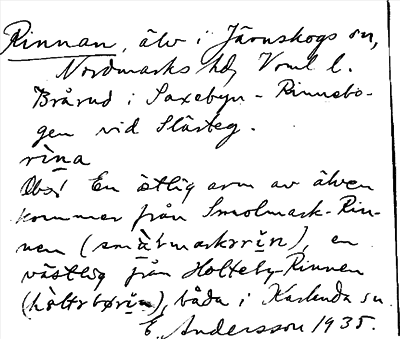 Rinnan, älv i Järnskogs sn,
Nordmarks hd, Vrml l.
Brårud i Saxebyn - Rinnebo-
gen vid Slästeg.
rìna
Obs! En östlig arm av älven
kommer från Smolmark-Rin-
nen (smàlmarksrin), en
västlig från Holteby-Rinnen
(hòltebørin), båda i Karlanda sn
E. Andersson 1935.